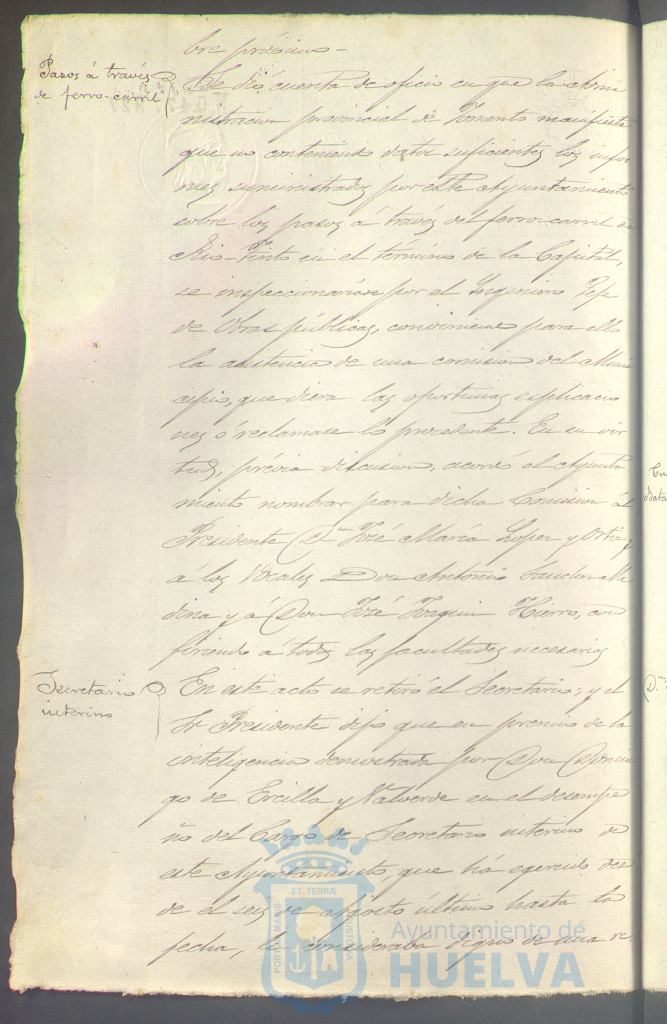 bre próximo -
Pasos á través
de ferro-carril
Se dio cuenta de oficio en que la Admi
nistracion provincial de Fomento manifiesta
que no conteniendo datos suficientes los infor
mes suministrados por este Ayuntamiento
sobre los pasos á través del ferro-carril de
Rio-Tinto en el término de la Capital,
se inspeccionarian por el Ingeniero Jefe
de Obras públicas, conviniendo para ello
la asistencia de una comision del Muni
cipio, que diera las oportunas esplicacio
nes ó reclamase lo procedente. En su vir
tud, prévia discusion, acordó el Ayunta
miento nombrar para dicha Comision al
Presidente D. José María Lopez y Ortiz y
á los Vocales Don Antonio Sanchez Me
dina y á Don José Joaquin Hierro, con
firiendo á todos las facultades necesarias
Secretario
interino
En este acto se retiró el Secretario; y el
Sr Presidente dijo que en premio de la
inteligencia demostrada por Don Domin
go de Ercilla y Valverde en el desempe
ño del Cargo de Secretario interino de
este Ayuntamiento, que há egercido des
de el seis de Agosto último hasta la
fecha, le consideraba digno de una re
PORTUS MARIS
ET TERRÆ
CUSTODIA
Ayuntamiento de
HUELVA